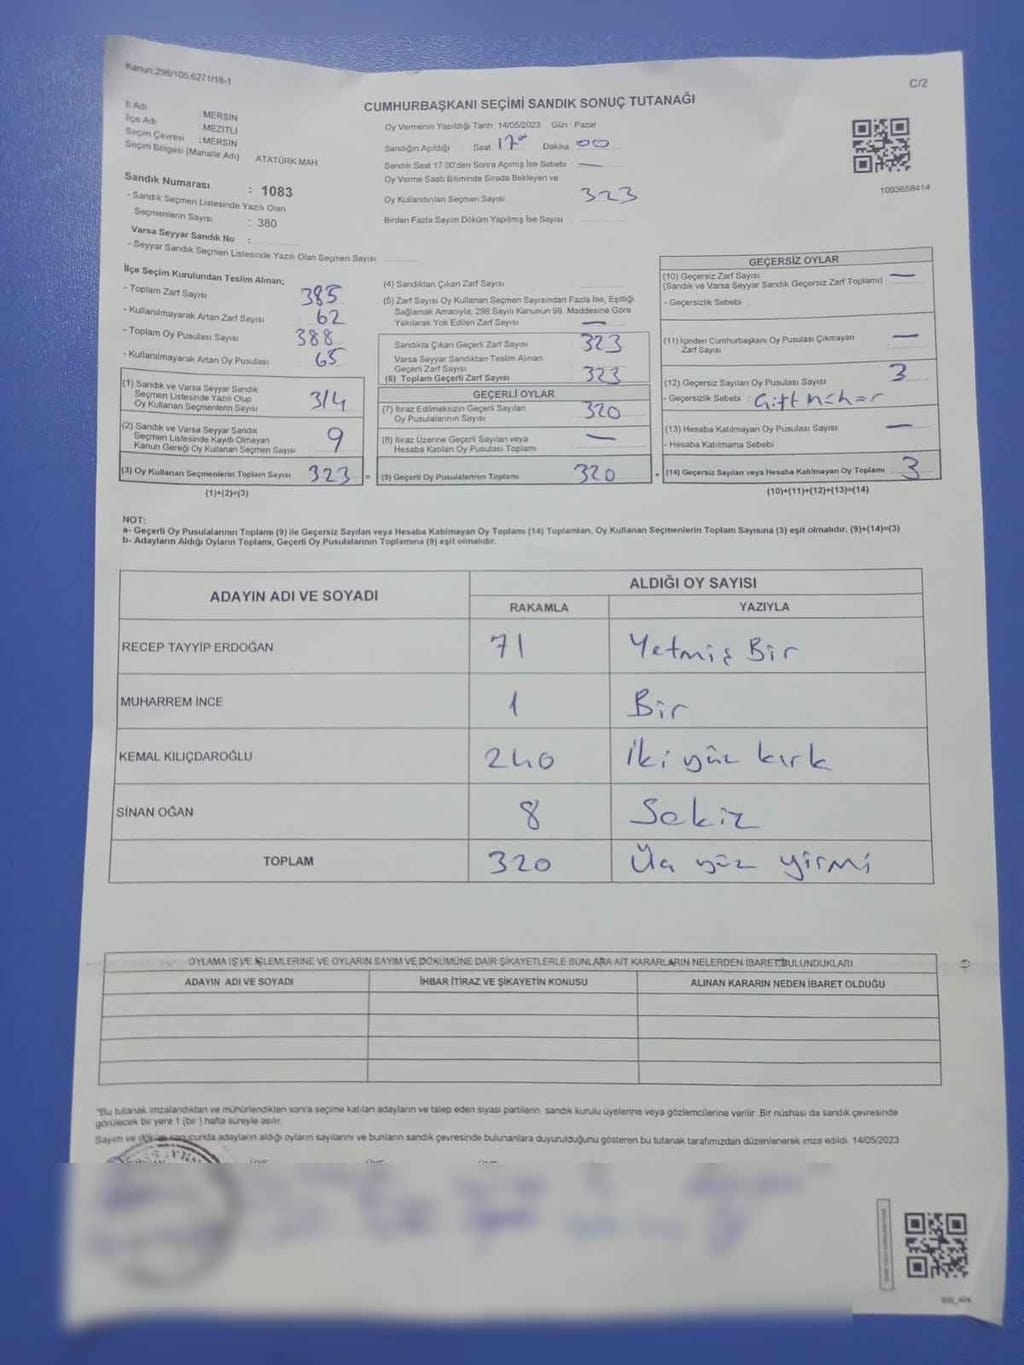 Kanun:298/105,6271/18-1
C/2
CUMHURBAŞKANI SEÇİMİ SANDIK SONUÇ TUTANAĞI
İl Adı : MERSİN
İlçe Adı : MEZİTLİ
Seçim Çevresi : MERSİN
Seçim Bölgesi (Mahalle Adı) ATATÜRK MAH.
Sandık Numarası : 1083
- Sandık Seçmen Listesinde Yazılı Olan
Seçmenlerin Sayısı : 380
Varsa Seyyar Sandık No :
- Seyyar Sandık Seçmen Listesinde Yazılı Olan Seçmen Sayısı
Oy Vermenin Yapıldığı Tarih :14/05/2023 Gün : Pazar
Sandığın Açıldığı Saat 17 00 Dakika 00
Sandık Saat 17:00'den Sonra Açılmış İse Sebebi : —
Oy Verme Saati Bitiminde Sırada Bekleyen ve
Oy Kullandırılan Seçmen Sayısı 323
Birden Fazla Sayım Döküm Yapılmış İse Sayısı
1003658414
İlçe Seçim Kurulundan Teslim Alınan;
- Toplam Zarf Sayısı 385
- Kullanılmayarak Artan Zarf Sayısı 62
- Toplam Oy Pusulası Sayısı 388
- Kullanılmayarak Artan Oy Pusulası 65
(1) Sandık ve Varsa Seyyar Sandık
Seçmen Listesinde Yazılı Olup
Oy Kullanan Seçmenlerin Sayısı 314
(2) Sandık ve Varsa Seyyar Sandık
Seçmen Listesinde Kayıtlı Olmayan
Kanun Gereği Oy Kullanan Seçmen Sayısı 9
(3) Oy Kullanan Seçmenlerin Toplam Sayısı 323 =
(1)+(2)=(3)
(4) Sandıktan Çıkan Zarf Sayısı
(5) Zarf Sayısı Oy Kullanan Seçmen Sayısından Fazla İse, Eşitliği
Sağlamak Amacıyla, 298 Sayılı Kanunun 98. Maddesine Göre
Yakılarak Yok Edilen Zarf Sayısı —
Sandıkta Çıkan Geçerli Zarf Sayısı 323
Varsa Seyyar Sandıktan Teslim Alınan
Geçerli Zarf Sayısı
(6) Toplam Geçerli Zarf Sayısı 323
GEÇERLİ OYLAR
(7) İtiraz Edilmeksizin Geçerli Sayılan
Oy Pusulalarının Sayısı 320
(8) İtiraz Üzerine Geçerli Sayılan veya
Hesaba Katılan Oy Pusulası Toplamı —
(9) Geçerli Oy Pusulalarının Toplamı 320 +
GEÇERSİZ OYLAR
(10) Geçersiz Zarf Sayısı —
(Sandık ve Varsa Seyyar Sandık Geçersiz Zarf Toplamı)
- Geçersizlik Sebebi
(11) İçinden Cumhurbaşkanı Oy Pusulası Çıkmayan —
Zarf Sayısı
(12) Geçersiz Sayılan Oy Pusulası Sayısı 3
- Geçersizlik Sebebi :
(13) Hesaba Katılmayan Oy Pusulası Sayısı —
- Hesaba Katılmama Sebebi
(14) Geçersiz Sayılan veya Hesaba Katılmayan Oy Toplamı 3
(10)+(11)+(12)+(13)=(14)
NOT:
a- Geçerli Oy Pusulalarının Toplamı (9) ile Geçersiz Sayılan veya Hesaba Katılmayan Oy Toplamı (14) Toplamları, Oy Kullanan Seçmenlerin Toplam Sayısına (3) eşit olmalıdır. (9)+(14)=(3)
b- Adayların Aldığı Oyların Toplamı, Geçerli Oy Pusulalarının Toplamına (9) eşit olmalıdır.
ADAYIN ADI VE SOYADI
ALDIĞI OY SAYISI
RAKAMLA YAZIYLA
RECEP TAYYİP ERDOĞAN 71 Yetmiş Bir
MUHARREM İNCE 1 Bir
KEMAL KILIÇDAROĞLU 240 İki yüz kırk
SİNAN OĞAN 8 Sekiz
TOPLAM 320 Üç yüz yirmi
OYLAMA İŞ VE İŞLEMLERİNE VE OYLARIN SAYIM VE DÖKÜMÜNE DAİR ŞİKAYETLERLE BUNLARA AİT KARARLARIN NELERDEN İBARET BULUNDUKLARI
ADAYIN ADI VE SOYADI İHBAR İTİRAZ VE ŞİKAYETİN KONUSU ALINAN KARARIN NEDEN İBARET OLDUĞU
*Bu tutanak imzalandıktan ve mühürlendikten sonra seçime katılan adayların ve talep eden siyasi partilerin sandık kurulu üyelerine veya gözlemcilerine verilir. Bir nüshası da sandık çevresinde
görülecek bir yere 1 (bir) hafta süreyle asılır.
Sayım ve döküm sonucunda adayların aldığı oyların sayılarını ve bunların sandık çevresinde bulunanlara duyurulduğunu gösteren bu tutanak tarafımızdan düzenlenerek imza edildi. 14/05/2023